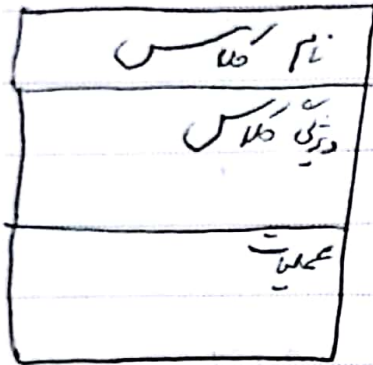 نام کلاس
ویژگی کلاس
عملیات